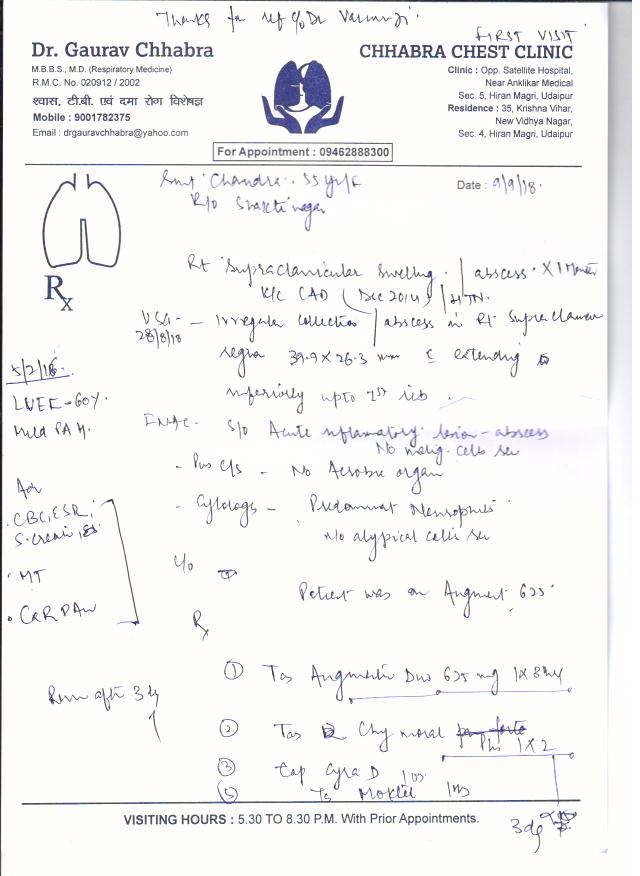 Thanks for ref c/o Dr
FIRST VISIT
Dr. Gaurav Chhabra
M.B.B.S., M.D. (Respiratory Medicine)
R.M.C. No. 020912 / 2002
श्वास, टी.बी. एवं दमा रोग विशेषज्ञ
Mobile : 9001782375
Email : drgauravchhabra@yahoo.com
CHHABRA CHEST CLINIC
Clinic : Opp. Satellite Hospital,
Near Anklikar Medical
Sec. 5, Hiran Magri, Udaipur
Residence : 35, Krishna Vihar,
New Vidhya Nagar,
Sec. 4, Hiran Magri, Udaipur
For Appointment : 09462888300
Smt Chandra. 55 yr/F
R/o Shakti nagar
Date : 9/9/18.
Rx
Rt Supraclavicular Swelling / abscess X 1 Month
K/c CAD (Dec 2014) / HTN.
USG - Irregular collection / abscess in Rt Supraclavicular
28/8/18
region 39.9 X 26.3 mm c extending
inferiorly upto 2nd rib
5/2/16.
LVEF - 60%
Mild PAH.
FNAC - S/o Acute inflammatory lesion - abscess
No malig. cells
- Pus C/s - No Aerobic organ
- Cytology - Predominant Neutrophils
No atypical cells
Adv
. CBC, ESR,
S. Creat,
. MT
. CXR PAV
C/o
Patient was on Augment 625
Rx
Rev after 3 dy
① Tab Augmentin Duo 625 mg 1X 8
② Tab Chymoral Plus 1 X 2
③ Cap Cyra D 1
⑤
3 dy
VISITING HOURS : 5.30 TO 8.30 P.M. With Prior Appointments.